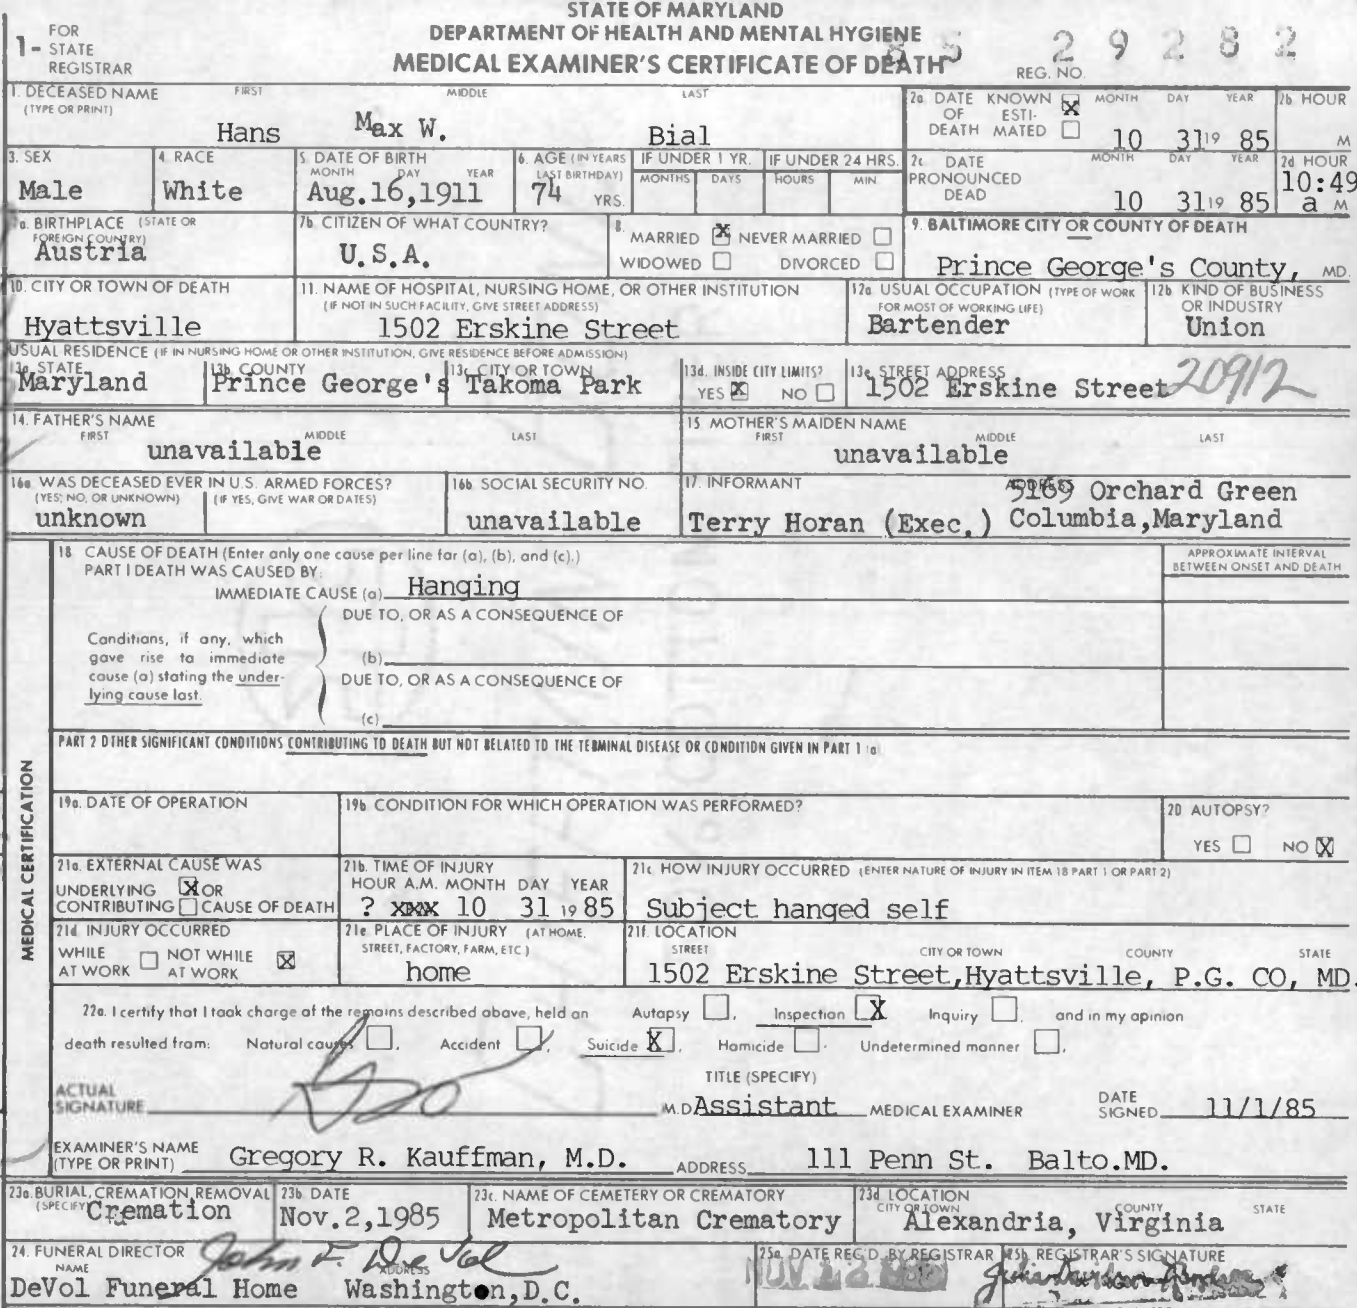 STATE OF MARYLAND
DEPARTMENT OF HEALTH AND MENTAL HYGIENE
MEDICAL EXAMINER'S CERTIFICATE OF DEATH
1- FOR STATE REGISTRAR
REG. NO. 85 29282
1. DECEASED NAME (TYPE OR PRINT) FIRST MIDDLE LAST
Hans Max W. Bial
2a DATE OF DEATH KNOWN X ESTIMATED MONTH DAY YEAR 2b HOUR
10 31 19 85 M
3. SEX 4. RACE 5. DATE OF BIRTH MONTH DAY YEAR 6. AGE (IN YEARS LAST BIRTHDAY) IF UNDER 1 YR. MONTHS DAYS IF UNDER 24 HRS. HOURS MIN
Male White Aug.16,1911 74 YRS.
2c DATE PRONOUNCED DEAD MONTH DAY YEAR 2d HOUR
10 31 19 85 10:49 a M
7a. BIRTHPLACE (STATE OR FOREIGN COUNTRY) 7b CITIZEN OF WHAT COUNTRY?
Austria U.S.A.
8. MARRIED X NEVER MARRIED
WIDOWED DIVORCED
9. BALTIMORE CITY OR COUNTY OF DEATH
Prince George's County, MD.
10. CITY OR TOWN OF DEATH 11. NAME OF HOSPITAL, NURSING HOME, OR OTHER INSTITUTION
(IF NOT IN SUCH FACILITY, GIVE STREET ADDRESS)
Hyattsville 1502 Erskine Street
12a USUAL OCCUPATION (TYPE OF WORK FOR MOST OF WORKING LIFE) 12b KIND OF BUSINESS OR INDUSTRY
Bartender Union
USUAL RESIDENCE (IF IN NURSING HOME OR OTHER INSTITUTION, GIVE RESIDENCE BEFORE ADMISSION)
13a. STATE 13b. COUNTY 13c. CITY OR TOWN 13d. INSIDE CITY LIMITS? 13e. STREET ADDRESS
Maryland Prince George's Takoma Park YES X NO 1502 Erskine Street 20912
14. FATHER'S NAME FIRST MIDDLE LAST
unavailable
15 MOTHER'S MAIDEN NAME FIRST MIDDLE LAST
unavailable
16a WAS DECEASED EVER IN U.S. ARMED FORCES?
(YES, NO, OR UNKNOWN) (IF YES, GIVE WAR OR DATES)
unknown
16b SOCIAL SECURITY NO.
unavailable
17. INFORMANT ADDRESS
Terry Horan (Exec.) 5169 Orchard Green
Columbia,Maryland
MEDICAL CERTIFICATION
18 CAUSE OF DEATH (Enter only one cause per line for (a), (b), and (c).)
PART I DEATH WAS CAUSED BY:
IMMEDIATE CAUSE (a) Hanging
APPROXIMATE INTERVAL BETWEEN ONSET AND DEATH
DUE TO, OR AS A CONSEQUENCE OF
Conditions, if any, which gave rise to immediate cause (a) stating the underlying cause last.
(b)
DUE TO, OR AS A CONSEQUENCE OF
(c)
PART 2 OTHER SIGNIFICANT CONDITIONS CONTRIBUTING TO DEATH BUT NOT RELATED TO THE TERMINAL DISEASE OR CONDITION GIVEN IN PART 1 (a)
19a. DATE OF OPERATION 19b CONDITION FOR WHICH OPERATION WAS PERFORMED? 20 AUTOPSY?
YES NO X
21a. EXTERNAL CAUSE WAS
UNDERLYING X OR
CONTRIBUTING CAUSE OF DEATH
21b. TIME OF INJURY
HOUR A.M. MONTH DAY YEAR
? XXX 10 31 19 85
21c. HOW INJURY OCCURRED (ENTER NATURE OF INJURY IN ITEM 18 PART 1 OR PART 2)
Subject hanged self
21d INJURY OCCURRED
WHILE AT WORK NOT WHILE AT WORK X
21e PLACE OF INJURY (AT HOME, STREET, FACTORY, FARM, ETC.)
home
21f. LOCATION
STREET CITY OR TOWN COUNTY STATE
1502 Erskine Street,Hyattsville, P.G. CO, MD.
22a. I certify that I took charge of the remains described above, held an Autopsy , Inspection X Inquiry , and in my opinion
death resulted from: Natural causes , Accident , Suicide X , Homicide . Undetermined manner ,
TITLE (SPECIFY)
ACTUAL SIGNATURE M.D. Assistant MEDICAL EXAMINER DATE SIGNED 11/1/85
EXAMINER'S NAME (TYPE OR PRINT) Gregory R. Kauffman, M.D. ADDRESS 111 Penn St. Balto.MD.
23a. BURIAL, CREMATION, REMOVAL (SPECIFY) 23b DATE 23c. NAME OF CEMETERY OR CREMATORY 23d LOCATION CITY OR TOWN COUNTY STATE
Cremation Nov.2,1985 Metropolitan Crematory Alexandria, Virginia
24. FUNERAL DIRECTOR John F. DeVol
NAME ADDRESS
DeVol Funeral Home Washington,D.C.
25a. DATE REC'D. BY REGISTRAR 25b. REGISTRAR'S SIGNATURE
NOV